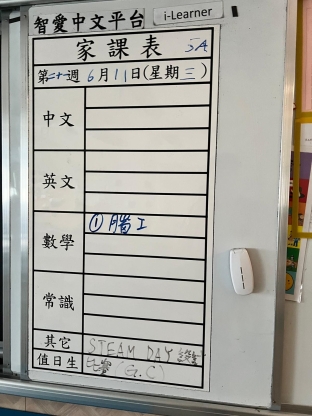 智愛中文平台 i-Learner
家課表 5A
第二十週 6月11日(星期三)
中文
英文
① 腦工
數學
常識
其它 STEAM DAY
值日生 比賽 (G.C)